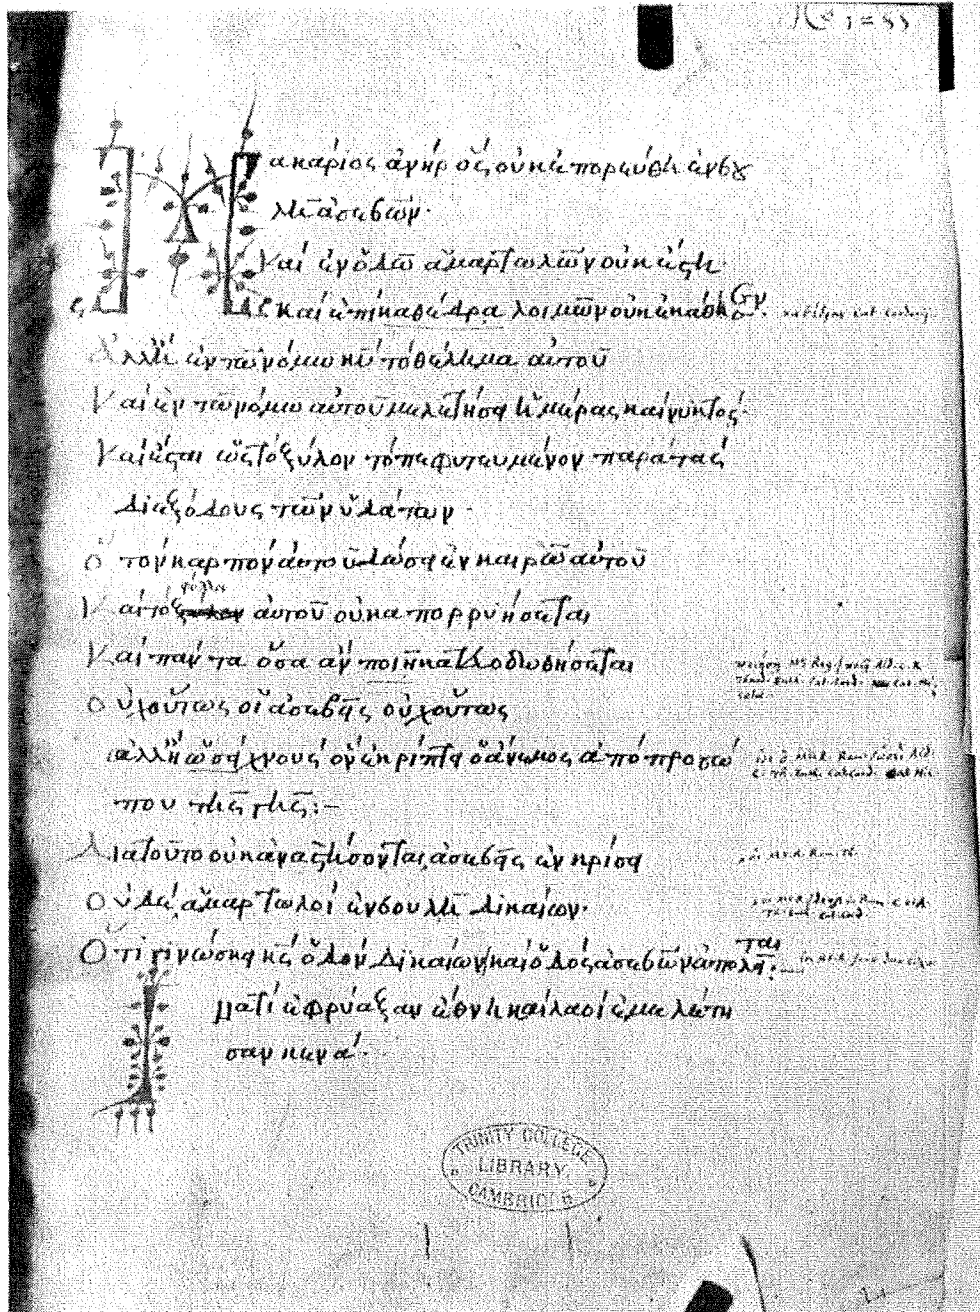 Μακάριος ἀνὴρ ὃς οὐκ ἐπορεύθη ἐν βου
λῆ ἀσεβῶν·
Καὶ ἐν ὁδῶ ἁμαρτωλῶν οὐκ ἔστη·
Καὶ ἐπὶ καθέδρα λοιμῶν οὐκ ἐκάθησεν·
Ἀλλ' ἢ ἐν τῶ νόμω κυ τὸ θέλημα αὐτοῦ
Καὶ ἐν τῶ νόμω αὐτοῦ μελετήσει ἡμέρας καὶ νυκτός·
Καὶ ἔσται ὡς τὸ ξύλον τὸ πεφυτευμένον παρὰ τὰς
διεξόδους τῶν ὑδάτων·
Ὃ τὸν καρπὸν αὐτοῦ δώσει ἐν καιρῶ αὐτοῦ
φύλλον
Καὶ τὸ αὐτοῦ οὐκ ἀπορρυήσεται
Καὶ πάντα ὅσα ἂν ποιῆ κατευοδωθήσεται
Οὐχ οὕτως οἱ ἀσεβεῖς οὐχ οὕτως
ἀλλ' ἢ ὡσεὶ χνοῦς ὃν ἐκρίπτει ὁ ἄνεμος ἀπὸ προσώ
που τῆς γῆς:–
Διὰ τοῦτο οὐκ ἀναστήσονται ἀσεβεῖς ἐν κρίσει
Οὐδὲ ἁμαρτωλοὶ ἐν βουλῆ δικαίων·
Ὅτι γινώσκει κς ὁδὸν δικαίων καὶ ὁδὸς ἀσεβῶν ἀπολεῖται:
Ἱνατί ἐφρύαξαν ἔθνη καὶ λαοὶ ἐμελέτη
σαν κενά·
TRINITY COLLEGE
LIBRARY,
CAMBRIDGE